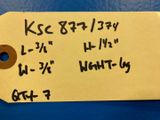 KSC 877/374
L-3/8" H-1 1/2"
W-3/8" WGHT-1g
QTY-7